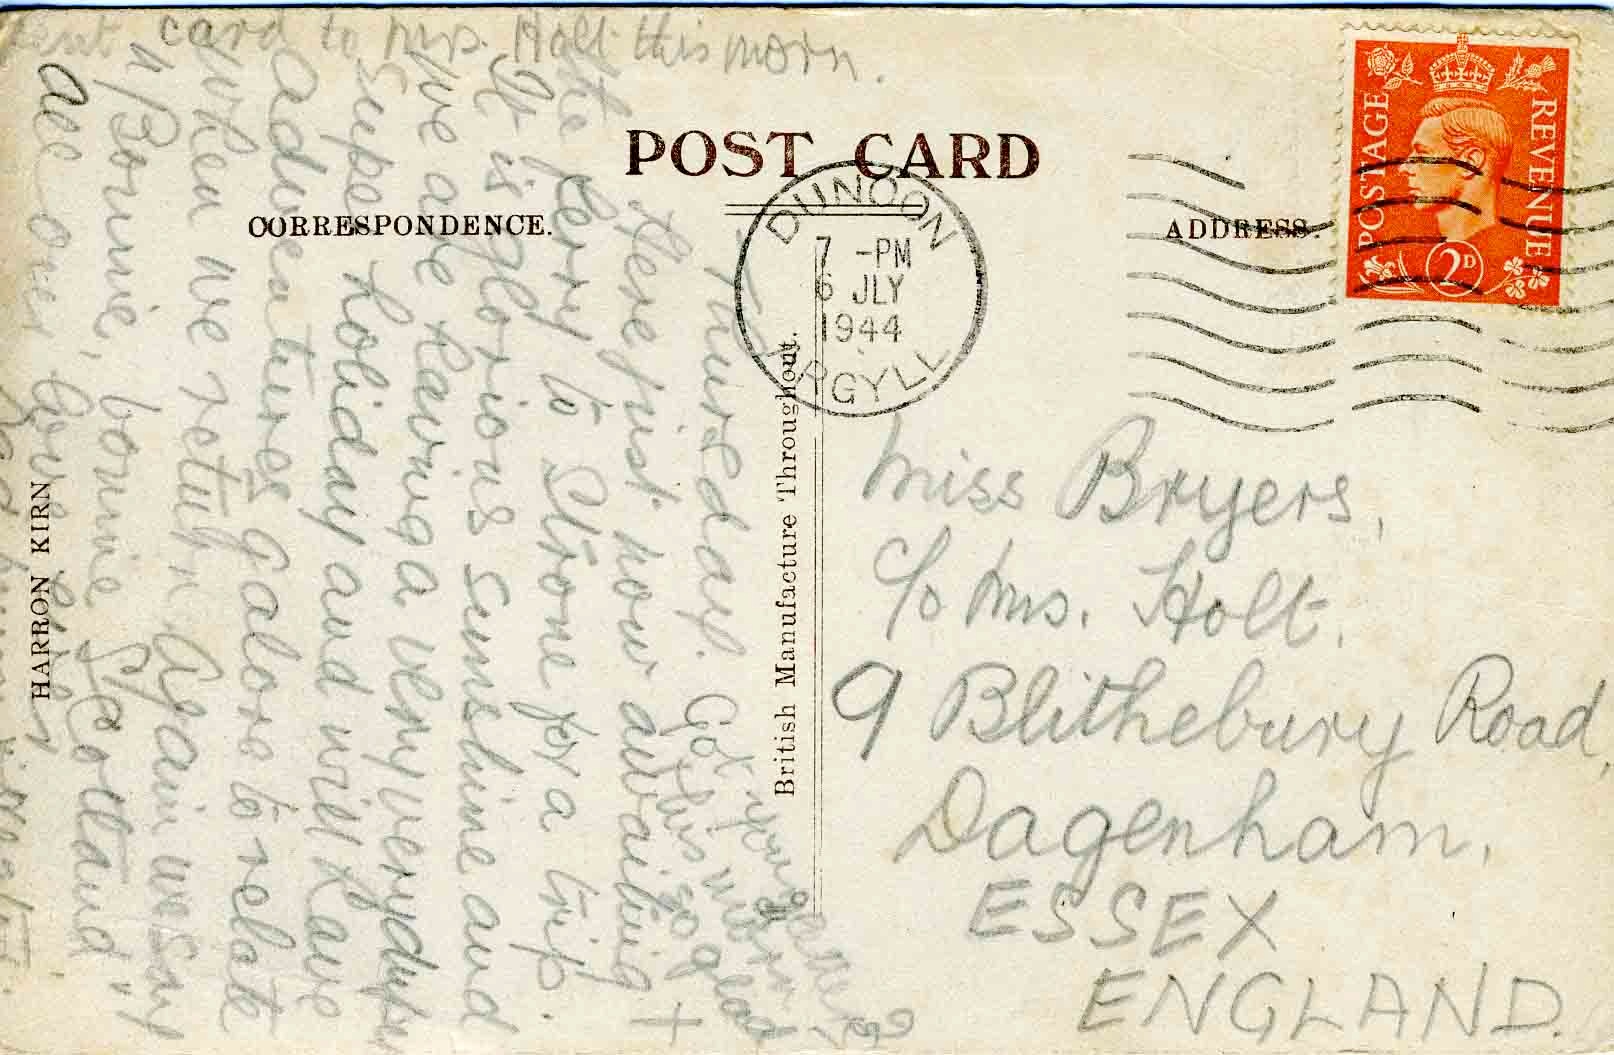 sent card to Mrs. Holt this morn.
POST CARD
CORRESPONDENCE.
ADDRESS.
POSTAGE
REVENUE
2D
DUNOON
7 -PM
6 JLY
1944
ARGYLL
HARRON KIRN
British Manufacture Throughout.
Thursday. Got your letter
this morn
so glad
Here just now awaiting
the ferry to Strone for a trip.
It is glorious sunshine and
We are having a very very
super holiday and will have
adventures galore to relate
when we return again we say
"Bonnie, bonnie Scotland"
All our love
Miss Bryers,
c/o Mrs. Holt.
9 Blithebury Road,
Dagenham.
ESSEX
ENGLAND.